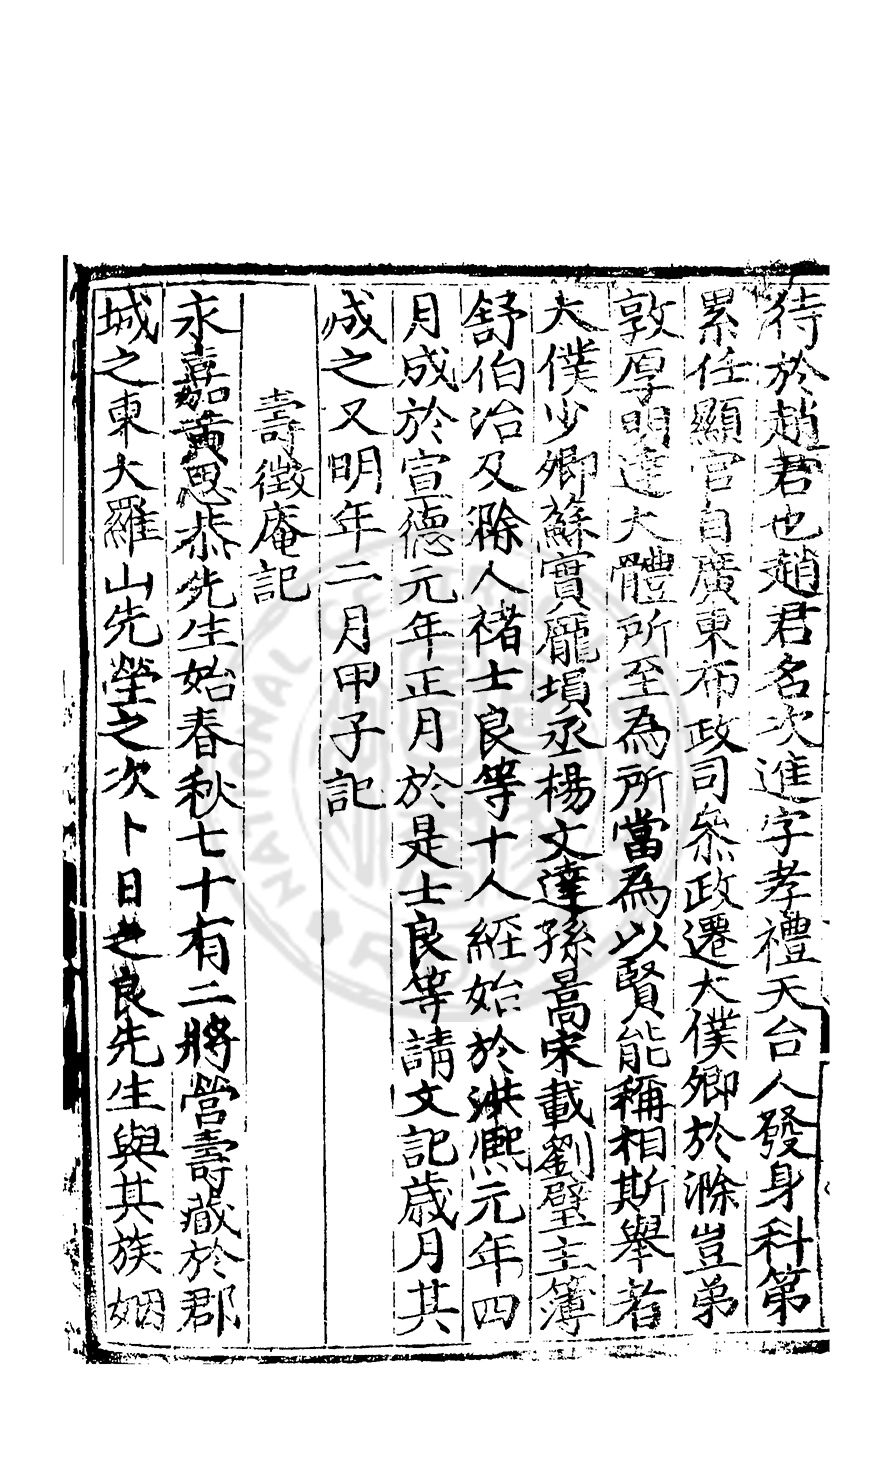 待於趙君也趙君名次進字孝禮天台人發身科第
累任顯官自廣東布政司叅政遷太僕卿於滁豈弟
敦厚明達大體所至為所當為以賢能稱相斯舉者
太僕少卿蘇實龎塤丞楊文達孫暠宋載劉璧主簿
舒伯治及滁人禇士良等十人經始於洪熙元年四
月成於宣德元年正月於是士良等請文記歳月其
成之又明年二月甲子記
壽徵庵記
永嘉黃思恭先生始春秋七十有二將營壽藏於郡
城之東大羅山先塋之次卜日之良先生與其族姻
NATIONAL CENTRAL